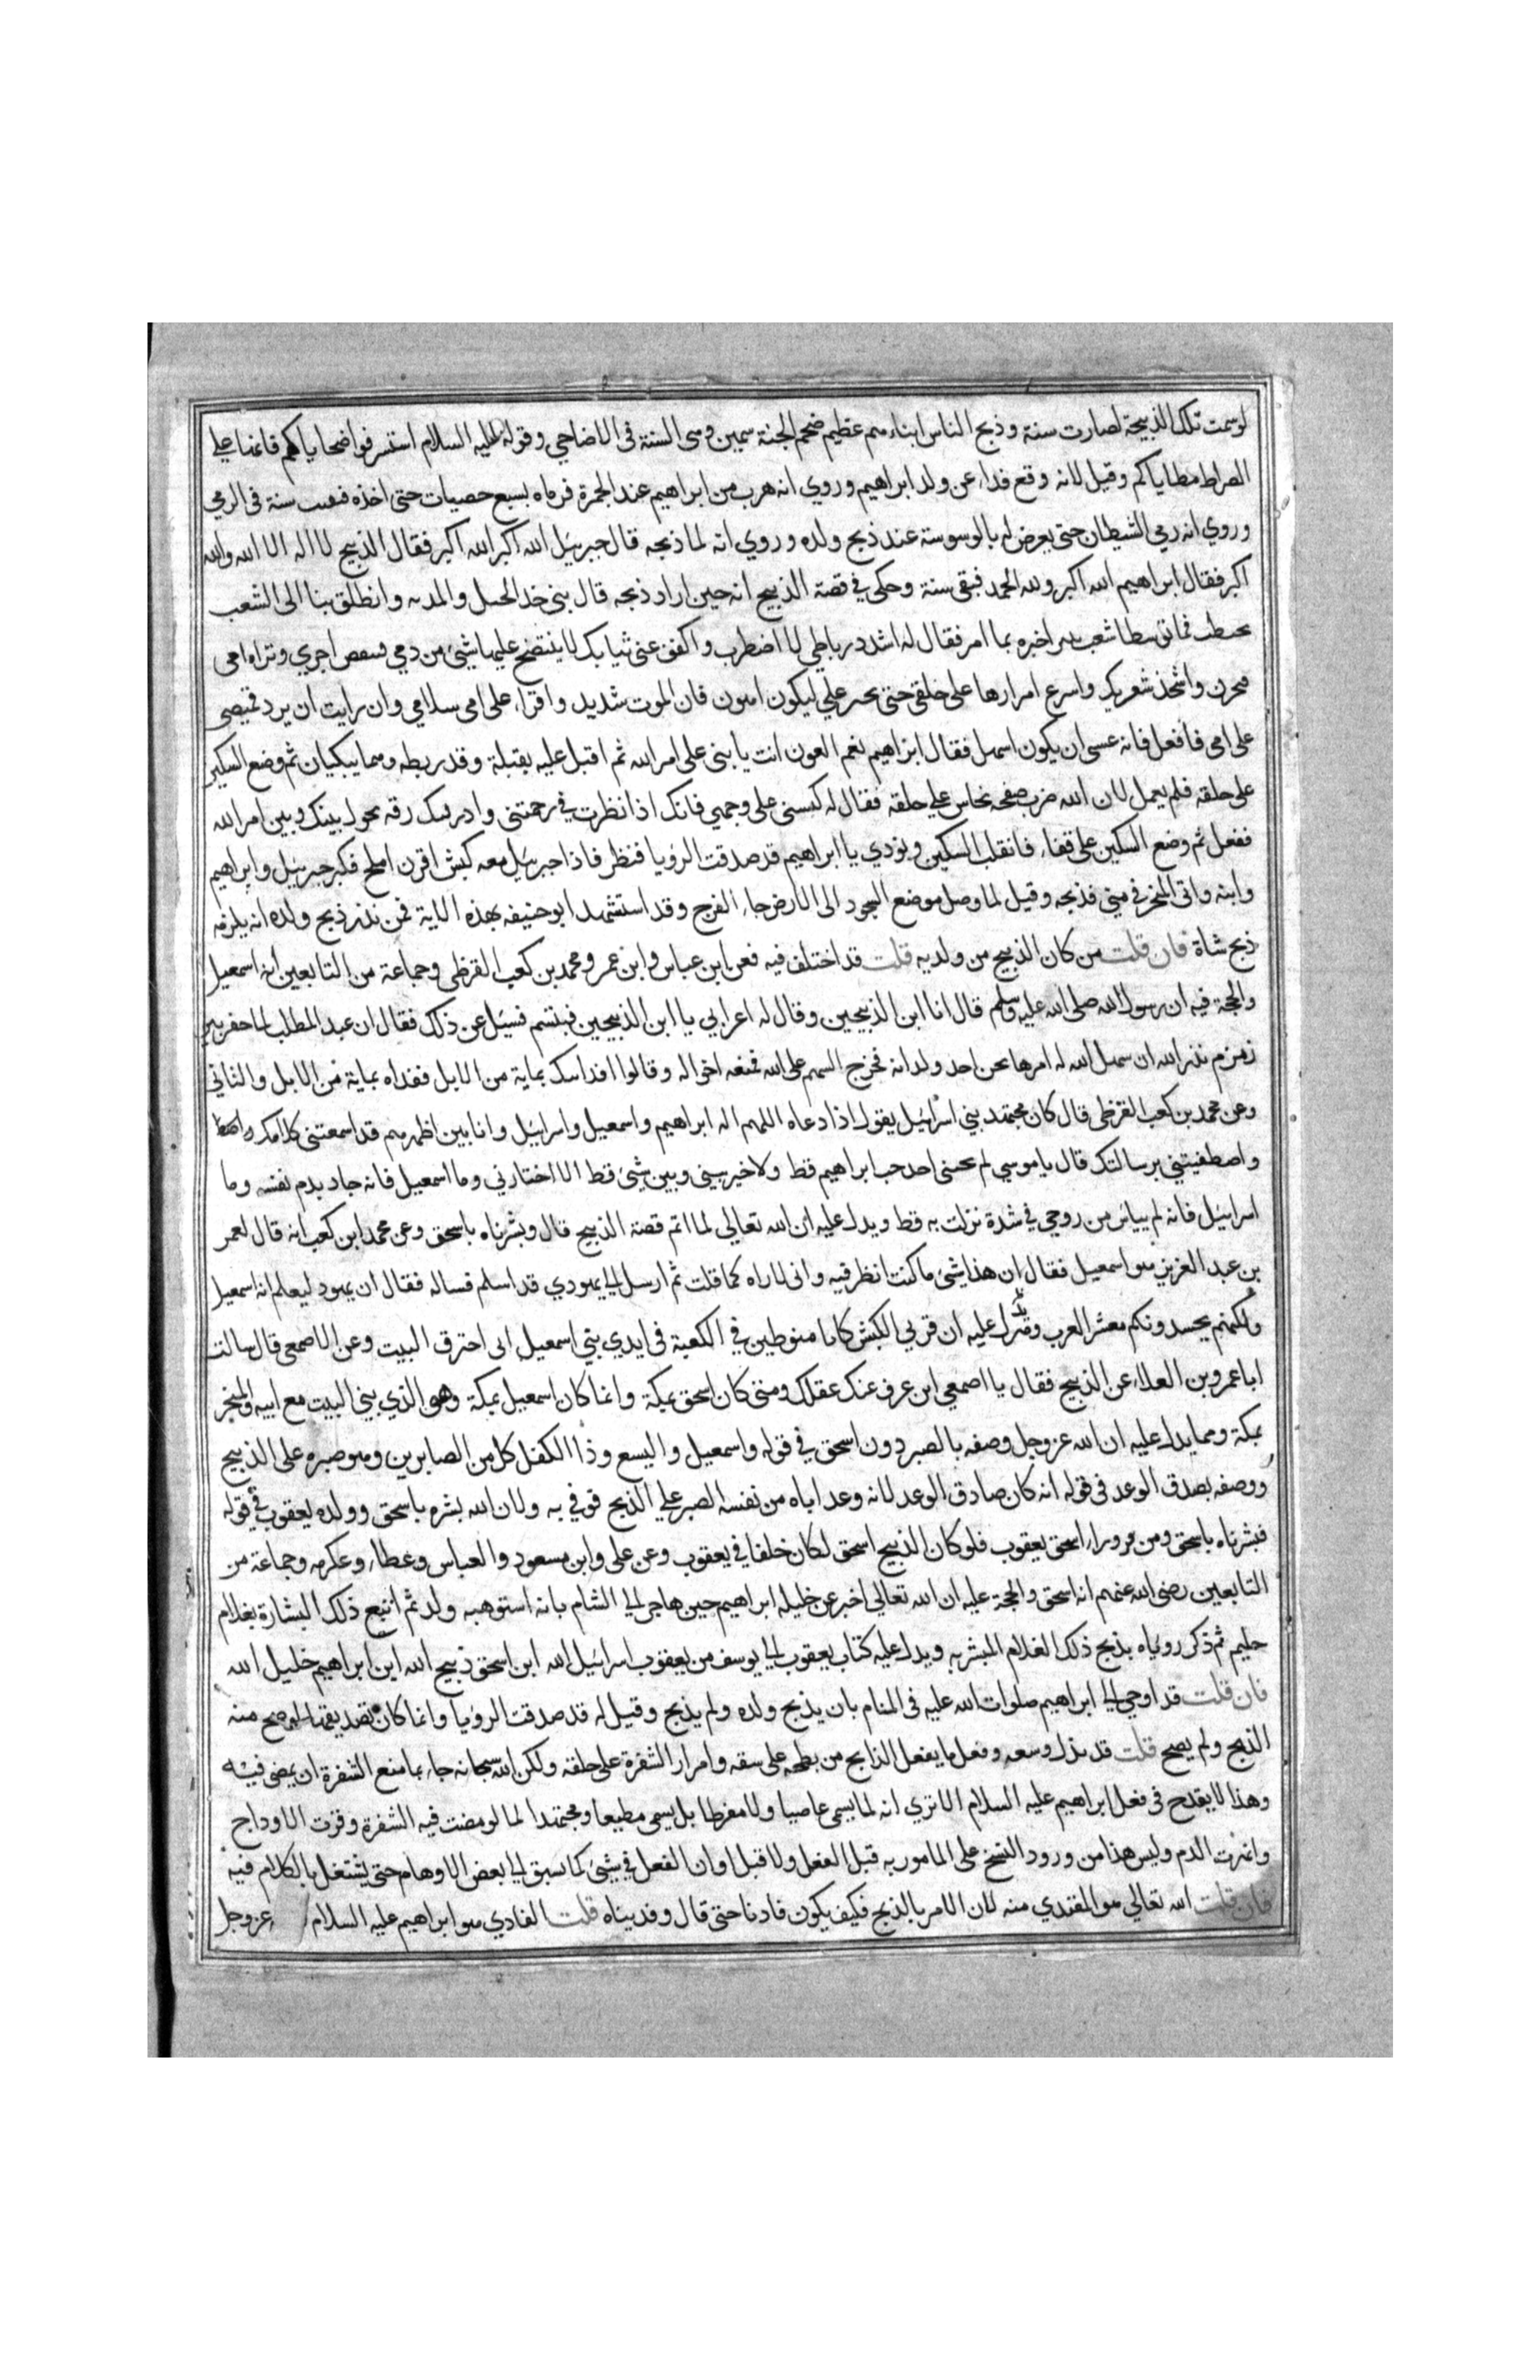 لوسمت تلك الذبيحة لصارت سنة وذبح الناس ابناءهم عظيم ضخم الجثة سمين وهى السنة فى الاضاحي وقوله عليه السلام استشرفوا ضحاياكم فانها علي
الصراط مطاياكم وقيل لانه وقع فداء عن ولد ابراهيم وروي انه هرب من ابراهيم عند الجمرة فرماه بسبع حصيات حتى اخذه فبقيت سنة فى الرمي
وروي انه رمي الشيطان حتى يعرض له بالوسوسة عند ذبح ولده وروي انه لما ذبحه قال جبرئيل الله اكبر الله اكبر فقال الذبيح لا اله الا الله والله
اكبر فقال ابراهيم الله اكبر ولله الحمد فبقى سنة وحكى في قصة الذبيح انه حين اراد ذبحه قال بنى خذ الحبل والمديه وانطلق بنا الى الشعب
نحتطب فلما توسطا شعب ثبير اخبره بما امر فقال له اشدد رباطي لا اضطرب واكفف عنى ثيابك لا ينتضح عليها شيئ من دمي فينقص اجري وتراه امى
فتحزن واشحذ شفرتك واسرع امرارها على حلقى حتى تجهز علي ليكون اهون فان الموت شديد واقراء على امى سلامي وان رايت ان يرد قميصى
على امى فافعل فانه عسى ان يكون اسهل فقال ابراهيم نعم العون انت يا بنى على امر الله ثم اقبل عليه يقبلة وقد ربطه وهما يبكيان ثم وضع السكين
على حلقه فلم يعمل لان الله ضرب صفحه نحاس علي حلقه فقال له كبنى على وجهي فانك اذا نظرت في رحمتنى وادركتك رقه تحول بينك وبين امر الله
ففعل ثم وضع السكين على قفاء فانقلب السكين ونودي يا ابراهيم قد صدقت الرؤيا فنظر فاذا جبرئيل معه كبش اقرن املح فكبر جبرئيل وابراهيم
وابنه واتى المنحر في منى فذبحه وقيل لما وصل موضع السجود الى الارض جاء الفرج وقد استشهد ابو حنيفه بهذه الاية فمن نذر ذبح ولده انه يلزمه
ذبح شاة فان قلت من كان الذبيح من ولديه قلت قد اختلف فيه فعن ابن عباس وابن عمر ومحمد بن كعب القرظى وجماعة من التابعين انه اسمعيل
والحجة فيه ان رسول الله صلى الله عليه وسلم قال انا ابن الذبيحين وقال له اعرابي يا ابن الذبيحين فبتسم فسئل عن ذلك فقال ان عبد المطلب لما حفر بير
زمزم نذر الله ان سهل الله له امرها نحن احد ولدانه فخرج السهم على الله فمنعه اخواله وقالوا افد ابنك بماية من الابل ففداه بماية من الابل والثانى
وعن محمد بن كعب القرظى قال كان مجتهد بني اسرائيل يقول اذا دعاه اللهم اله ابراهيم واسمعيل واسرائيل وانا بين اظهرهم قد اسمعتنى كلامك
واصطفيتنى برسالتك قال يا موسى لم يحبنى احد حب ابراهيم قط ولا خير بينى وبين شيئ قط الا اختارنى وما اسمعيل فانه جاد بدم نفسه وما
اسرائيل فانه لم ييائس من روحي في شدة نزلت به قط ويدل عليه ان الله تعالي لما اتم قصة الذبيح قال وبشرناه باسحق وعن محمد ابن كعب انه قال لعمر
بن عبد العزيز هو اسمعيل فقال ان هذا شيئ ما كنت انظر فيه وانى لاراه كما قلت ثم ارسل الي يهودي قد اسلم فساله فقال ان يهود ليعلم انه اسمعيل
ولكنهم يحسدونكم معشر العرب ويدل عليه ان قرنى الكبش كانا منوطين في الكعبة فى ايدي بني اسمعيل الى احترق البيت وعن الاصمعى قال سالت
ابا عمرو بن العلاء عن الذبيح فقال يا اصمعي اين عرف عنك عقلك ومتى كان اسحق بمكة وانما كان اسمعيل بمكة وهو الذي بني البيت مع ابيه والمنحر
بمكة ومما يدل عليه ان الله عز وجل وصفه بالصبر دون اسحق في قوله واسمعيل واليسع وذا الكفل كل من الصابرين وهو صبره على الذبح
ووصفه بصدق الوعد فى قوله انه كان صادق الوعد لانه وعد اباه من نفسه الصبر علي الذبح فوفي به ولان الله بشره باسحق وولده يعقوب في قوله
فبشرناه باسحق ومن وراء اسحق يعقوب فلو كان الذبيح اسحق لكان خلفا في يعقوب وعن على وابن مسعود والعباس وعطاء وعكرمه وجماعة من
التابعين رضى الله عنهم انه اسحق والحجة عليه ان الله تعالي اخبر عن خليله ابراهيم حين هاجر الي الشام بانه استوهبه ولد ثم اتبع ذلك البشارة بغلام
حليم ثم ذكر روياه بذبح ذلك الغلام المبشر به ويدل عليه كتاب يعقوب الي يوسف من يعقوب اسرائيل الله ابن اسحق ذبيح الله ابن ابراهيم خليل الله
فان قلت قد اوحي الي ابراهيم صلوات الله عليه فى المنام بان يذبح ولده ولم يذبح وقيل له قد صدقت الرؤيا وانما كان تصديقها لو صح منه
الذبح ولم يصح قلت قد بذل وسعه وفعل ما يفعل الذابح من بطحه على شقه وامرار الشفرة على حلقه ولكن الله سبحانه جاء بما منع الشفرة ان يمضى فيه
وهذا لا يقدح فى فعل ابراهيم عليه السلام الا تري انه لما يسمى عاصيا ولا مفرطا بل يسمى مطيعا ومجتهدا لما لو مضت فيه الشفرة وفرت الاوداج
وانهرت الدم وليس هذا من ورود النسخ على المامور به قبل الفعل ولا قبل اوان الفعل في شيئ كما سبق الي بعض الاوهام حتى يشتغل بالكلام فيه
فان قلت الله تعالي هو المفتدي منه لان الامر بالذبح فكيف يكون فاديا حتى قال وفديناه قلت الفادي هو ابراهيم عليه السلام عز وجل